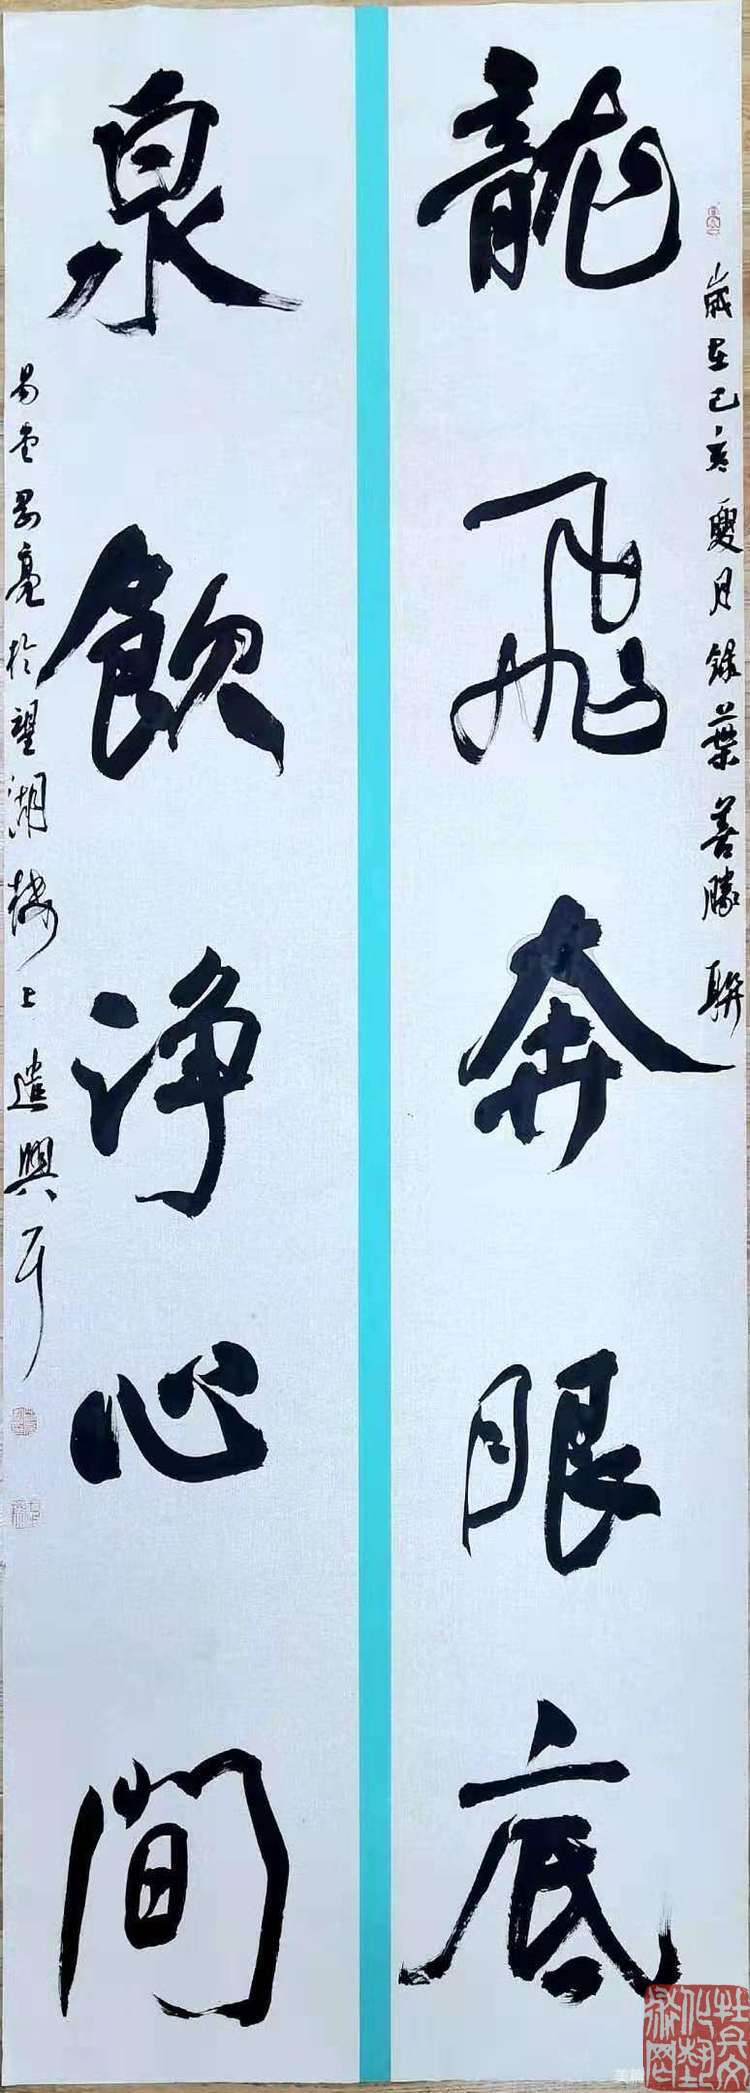 龍飛奔眼底
歲在己亥夏月錄葉善勝聯
泉飲淨心間
於望湖樓上遣興耳